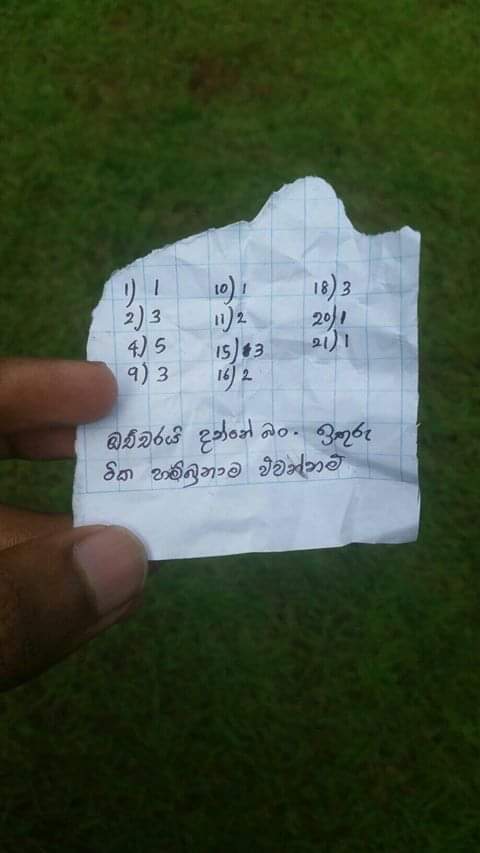 1) 1
2) 3
4) 5
9) 3
10) 1
11) 2
15) 3
16) 2
18) 3
20) 1
21) 1
ඔච්චරයි දන්නේ බං. ඉතුරු
ටික හම්බුනාම එවන්නම්